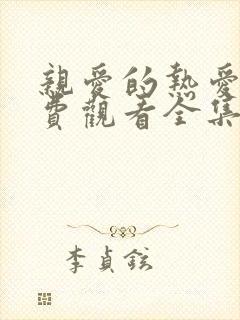 親愛的熱愛
費觀看全集
李貞鉉